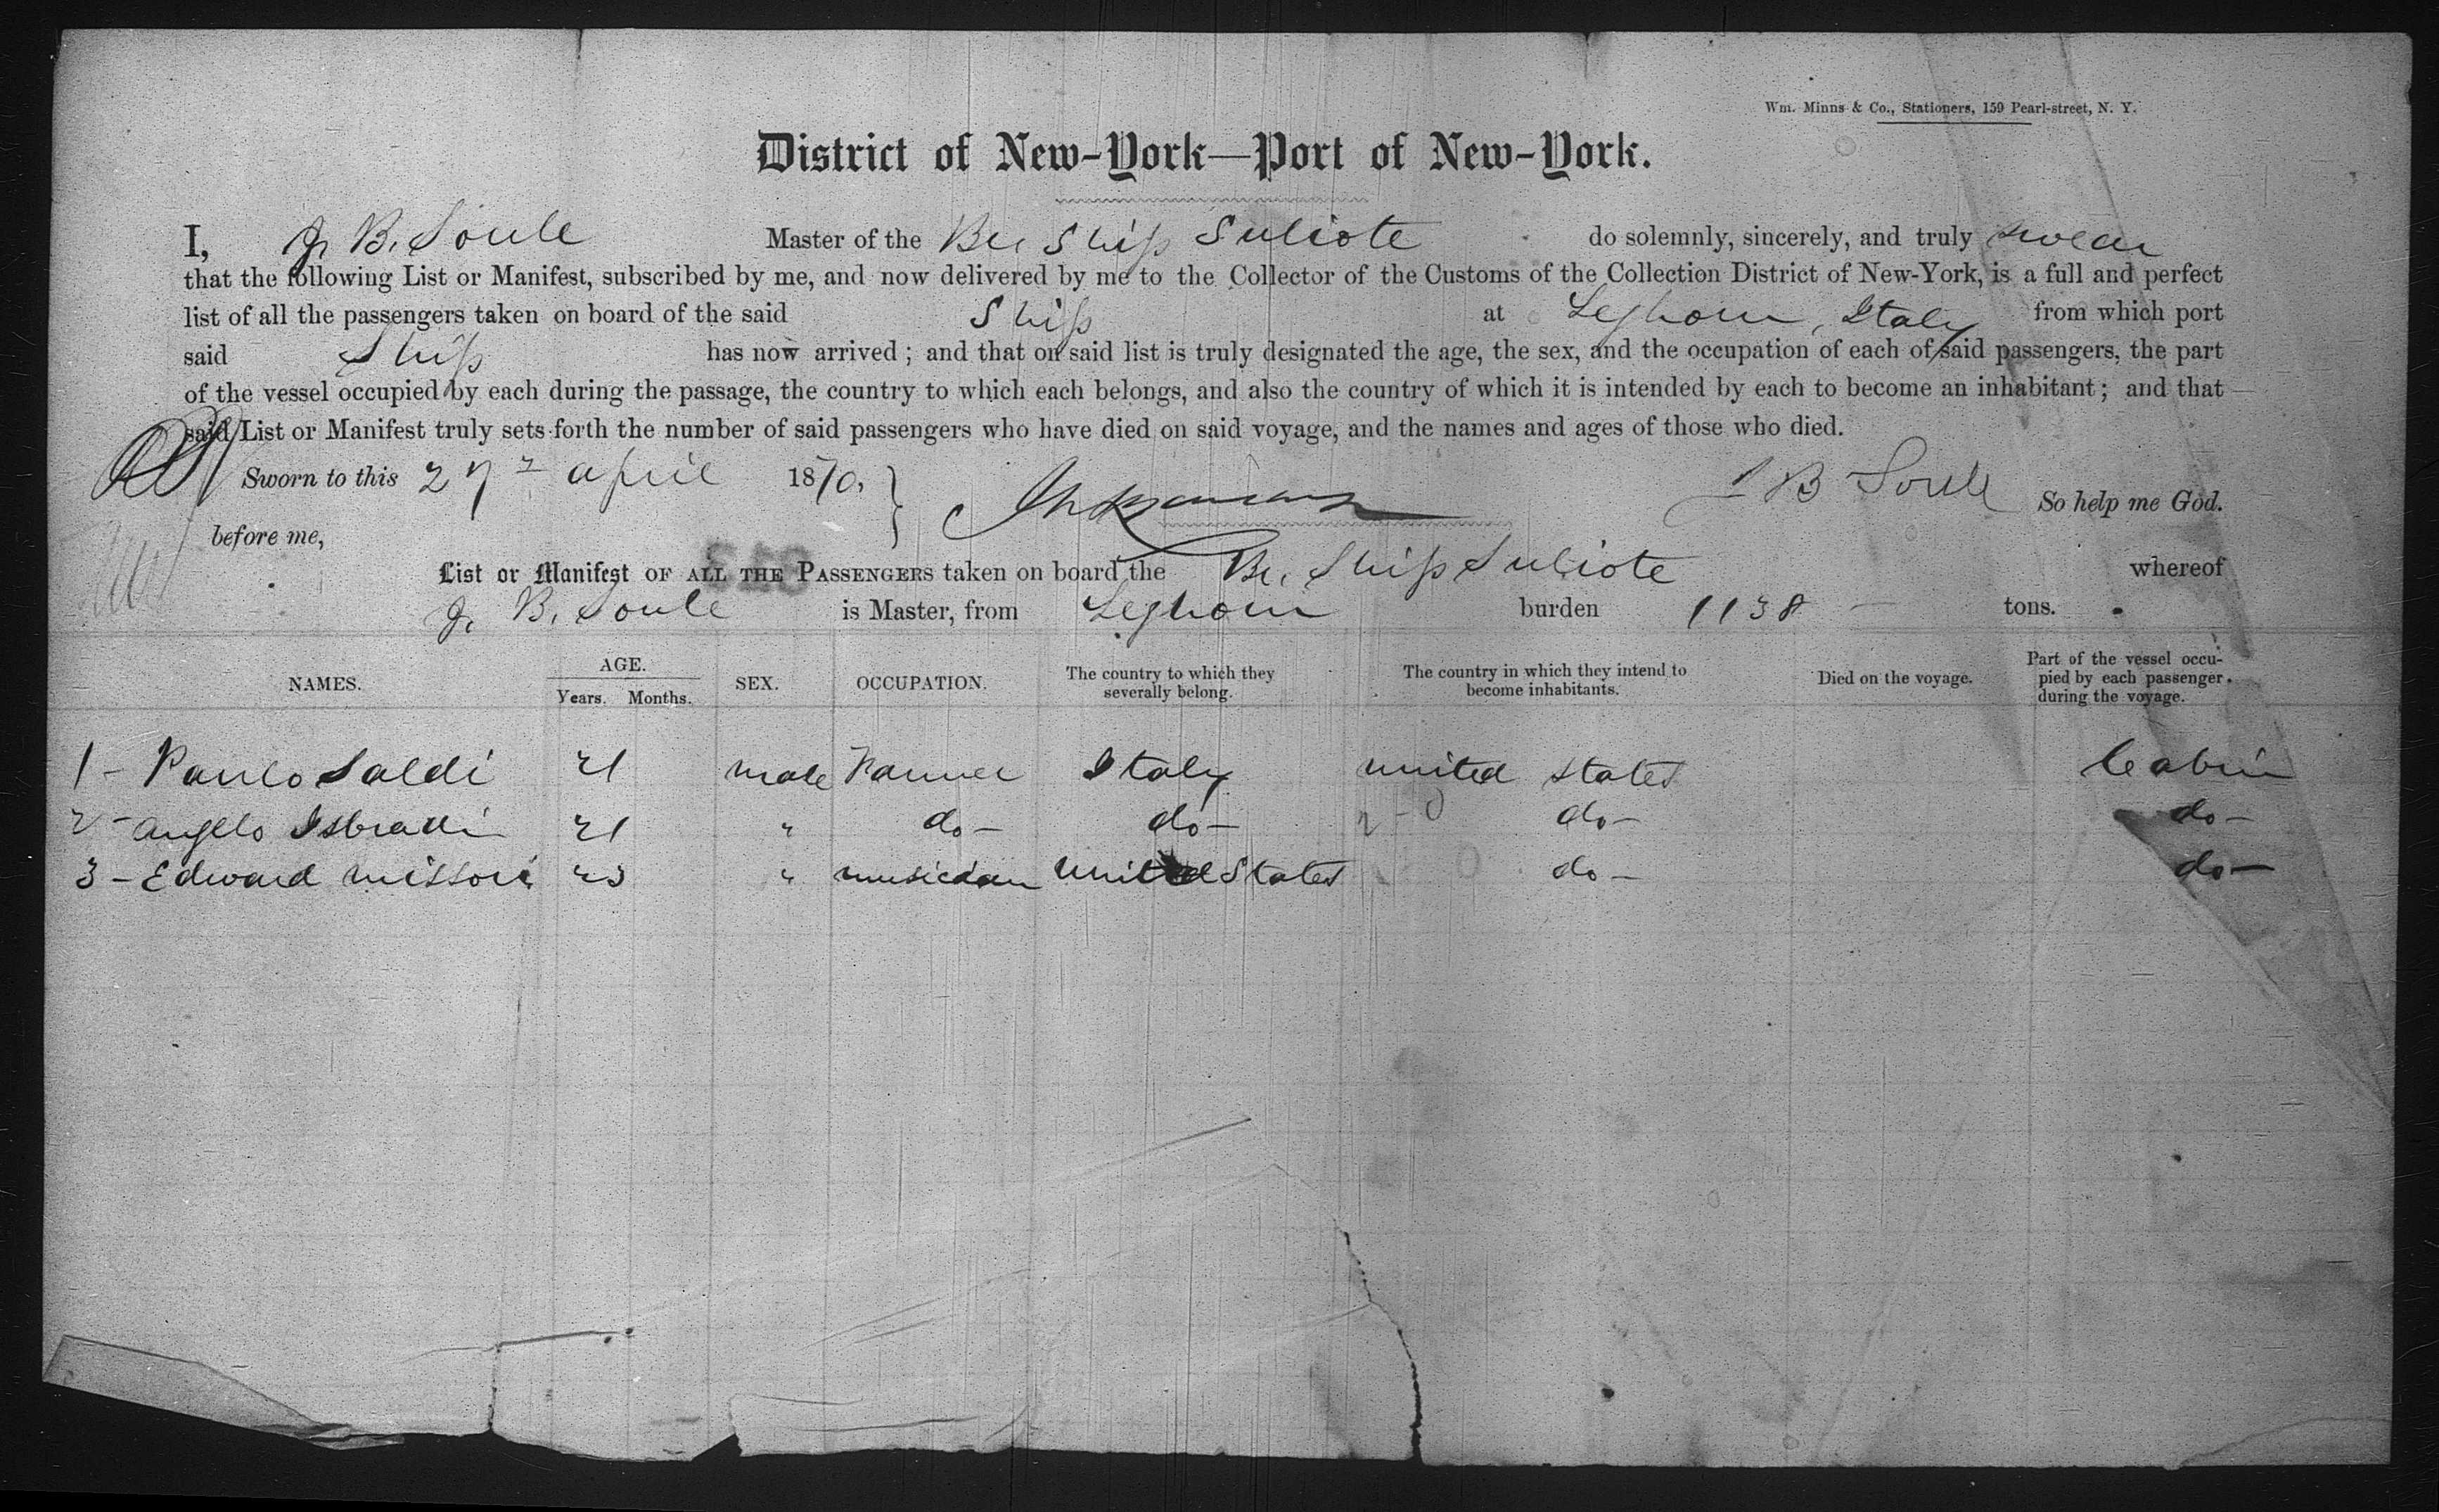 Wm. Minns & Co., Stationers, 159 Pearl-street, N. Y.
District of New-York—Port of New-York.
I, J. B. Soule Master of the Br. Ship Suliote do solemnly, sincerely, and truly swear
that the following List or Manifest, subscribed by me, and now delivered by me to the Collector of the Customs of the Collection District of New-York, is a full and perfect
list of all the passengers taken on board of the said Ship at Leghorn, Italy from which port
said Ship has now arrived; and that on said list is truly designated the age, the sex, and the occupation of each of said passengers, the part
of the vessel occupied by each during the passage, the country to which each belongs, and also the country of which it is intended by each to become an inhabitant; and that
said List or Manifest truly sets forth the number of said passengers who have died on said voyage, and the names and ages of those who died.
Sworn to this 27 april 1870, J B Soule So help me God.
before me,
List or Manifest OF ALL THE PASSENGERS taken on board the Br. Ship Suliote whereof
J. B. Soule is Master, from Leghorn burden 1138 — tons.
NAMES. AGE. Years. Months. SEX. OCCUPATION. The country to which they severally belong. The country in which they intend to become inhabitants. Died on the voyage. Part of the vessel occupied by each passenger during the voyage.
1 - Paulo Saldi 21 male Farmer Italy united states Cabin
2 - angelo 21 " do — do — do — do —
3 - Edward missori 23 " musician United States do — do —